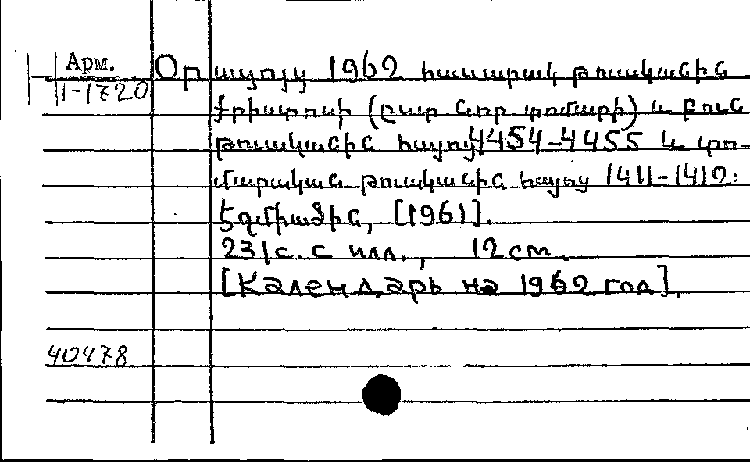 Арм.
11-1720
Օրացոյց 1962 հասարակ թուականին
Քրիստոսի (ըստ նոր տոմարի) և բուն
թուականին հայոց 4454-4455 և տո-
մարական թուականին հայոց 1411-1412:
Էջմիածին, [1961].
231 с. с илл., 12 cm.
[Календарь на 1962 год].
40478